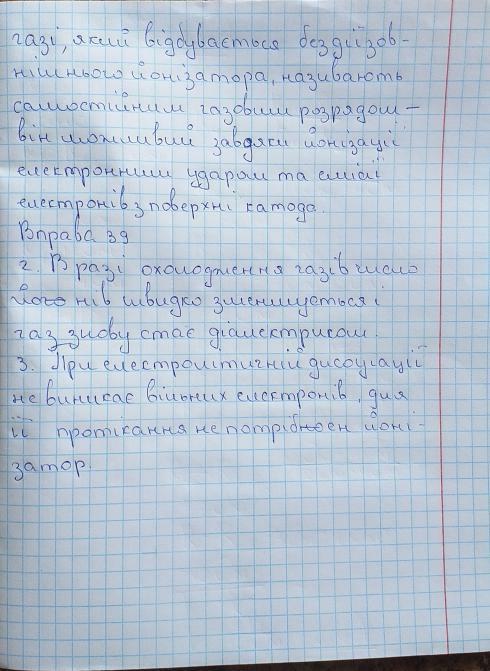 газі, який відбувається без дії зов-
нішнього йонізатора, називають
самостійним газовим розрядом –
він можливий завдяки йонізації
електронним ударом та емісії
електронів з поверхні катода.
Вправа 39
2. В разі охолодження газів число
його нів швидко зменшується і
газ знову стає діалектрисом.
3. При електролітичній дисоціації
не виникає вільних електронів, для
її протікання не потрібноен йоні-
затор.